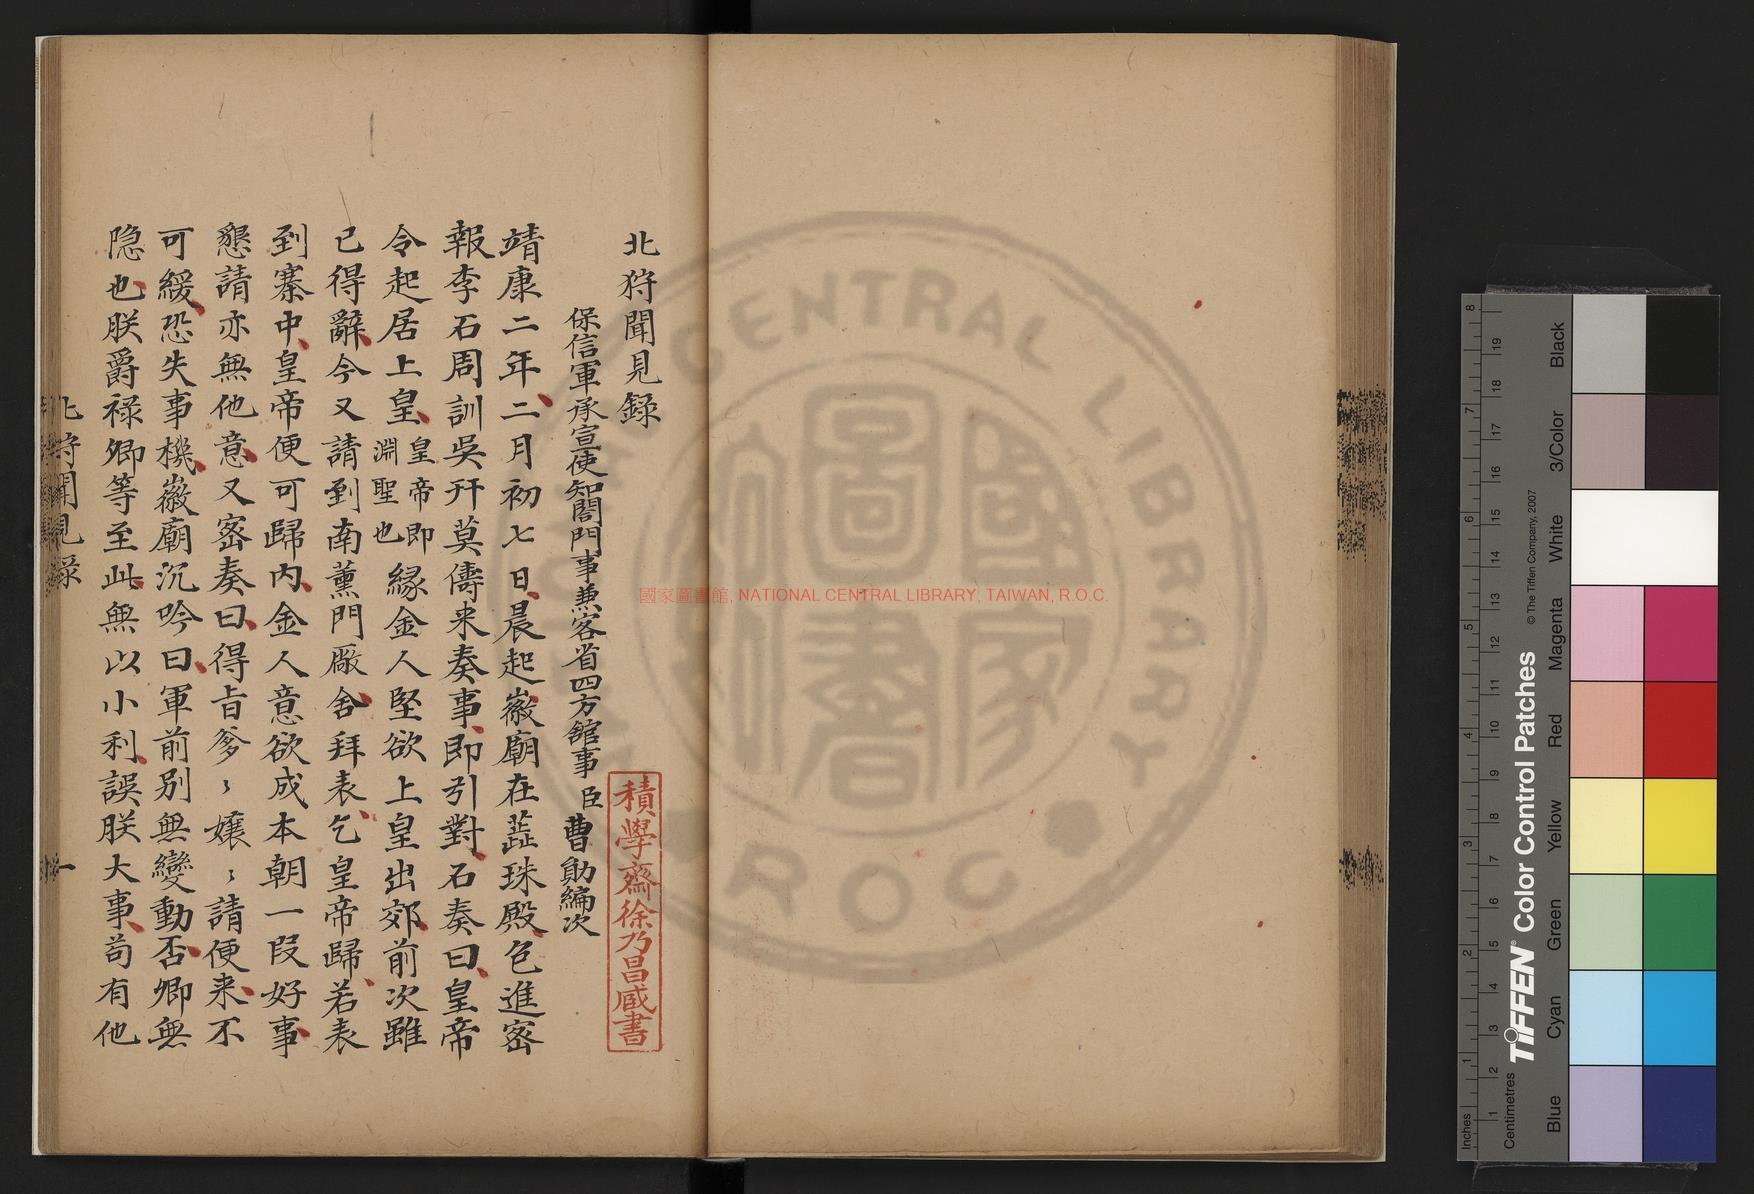 北狩聞見錄
保信軍承宣使知閤門事兼客省四方舘事臣曹勛編次
積學齋徐乃昌臧書
靖康二年二月初七日晨起徽廟在蘂珠殿色進密
報李石周訓吳幵莫儔来奏事即引對石奏曰皇帝
令起居上皇皇帝即淵聖也緣金人堅欲上皇出郊前次雖
已得辭今又請到南薰門廠舍拜表乞皇帝歸若表
到寨中皇帝便可歸内金人意欲成本朝一段好事
懇請亦無他意又密奏曰得旨爹〻孃〻請便来不
可緩恐失事機徽廟沉吟曰軍前別無變動否卿無
隐也朕爵禄卿等至此無以小利誤朕大事苟有他
北狩聞見録
一
國家圖書館, NATIONAL CENTRAL LIBRARY, TAIWAN, R.O.C.
NATIONAL CENTRAL LIBRARY
ROC
國家圖書
Inches
1 2 3 4 5 6 7 8
Centimetres
1 2 3 4 5 6 7 8 9 10 11 12 13 14 15 16 17 18 19
TIFFEN® Color Control Patches
© The Tiffen Company, 2007
Blue
Cyan
Green
Yellow
Red
Magenta
White
3/Color
Black